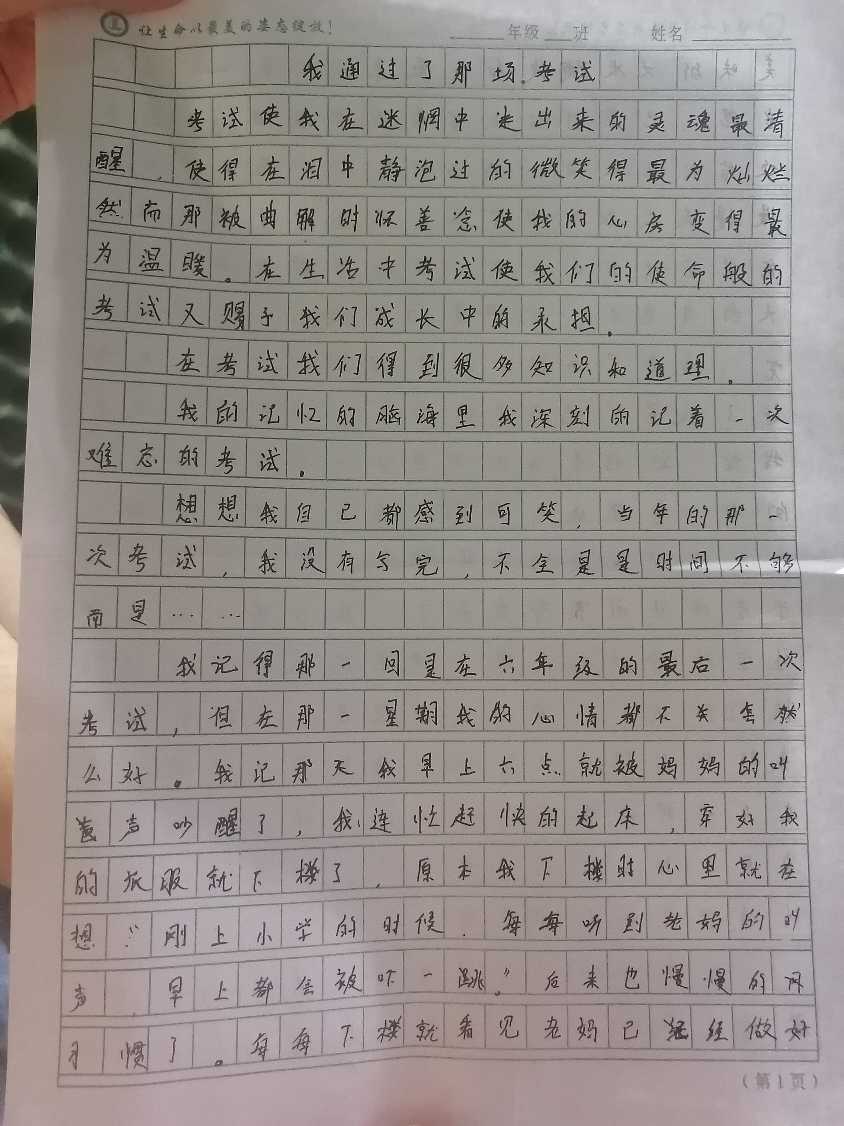 让生命以最美的姿态绽放！ 年级 班 姓名
我通过了那场考试
考试使我在迷惘中走出来的灵魂最清
醒，使得在泪中静泡过的微笑得最为灿烂
然而那被曲解时怀善念使我的心房变得最
为温暖。在生活中考试使我们的使命般的
考试又赐予我们成长中的承担。
在考试我们得到很多知识和道理。
我的记忆的脑海里我深刻的记着一次
难忘的考试。
想想我自己都感到可笑，当年的那一
次考试，我没有写完，不全是是时间不够
而是……
我记得那一回是在六年级的最后一次
考试，但在那一星期我的心情都不
么好。我记那天我早上六点就被妈妈的叫
声吵醒了，我连忙赶快的起床，穿好我
的衣服就下楼了，原本我下楼时心里就在
想“刚上小学的时候，每每听到老妈的叫
声，早上都会被吓一跳。”后来也慢慢的
习惯了。每每下楼就看见老妈已经做好
（第1页）